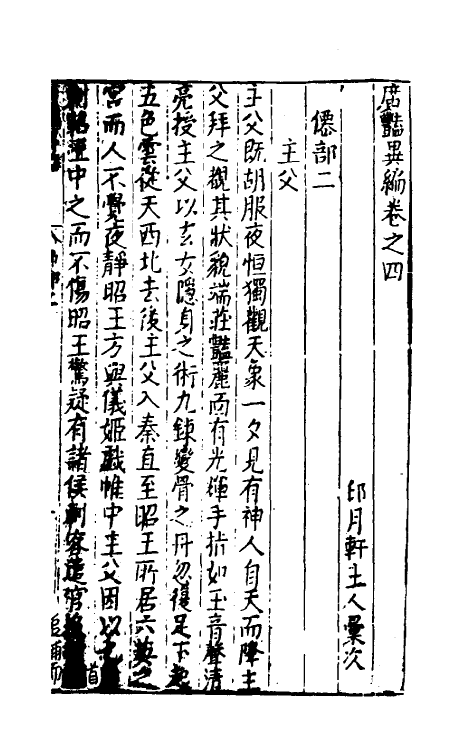 廣豔異編卷之四
印月軒主人彙次
僊部二
主父
主父既胡服夜恒獨觀天象一夕見有神人自天而降主
父拜之觀其狀貌端莊豔麗而有光輝手指如玉音聲清
亮授主父以玄女隱身之術九鍊變骨之丹忽復足下起
五色雲從天西北去後主父入秦直至昭王所居六英之
宮而人不覺夜靜昭王方與儀姬戲帷中主父因以匕首
昭王中之而不傷昭王驚疑有諸侯刺客遣宿追捕而